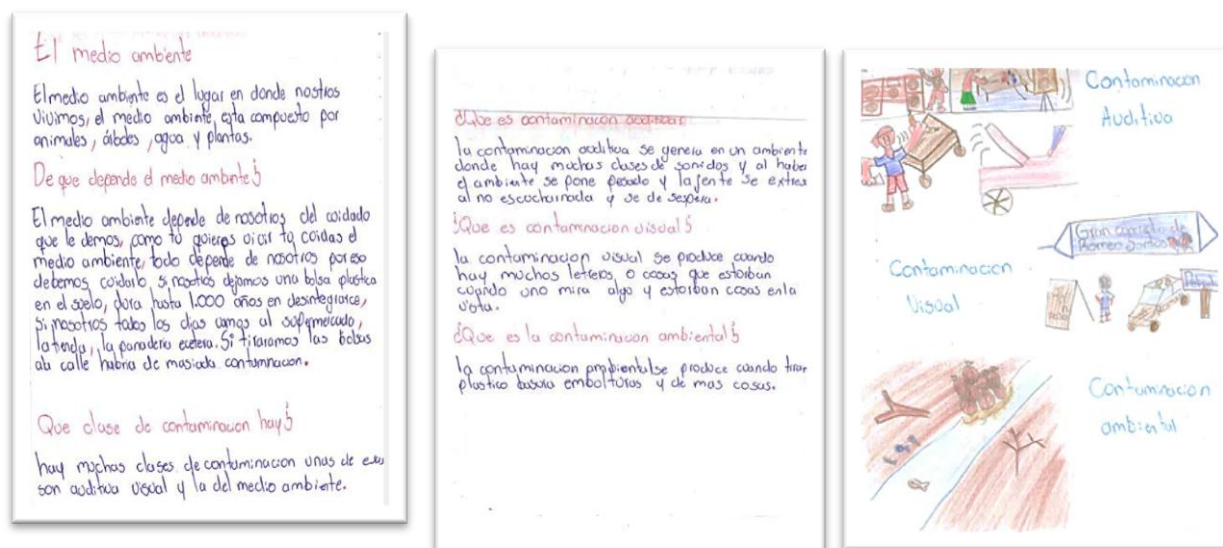 El medio ambiente
El medio ambiente es el lugar en donde nostros
vivimos, el medio ambiente esta compuesto por
animales, árboles, agua y plantas.
De que depende el medio ambinte?
El medio ambiente depende de nosotros del cuidado
que le demos, como tú quieres vivir tú cuidas el
medio ambiente, todo depende de nosotros por eso
debemos cuidarlo, si nosotros dejamos una bolsa plastica
en el suelo, dura hasta 1.000 años en desintegrarce,
Si nosotros todos los dias vamos al supermercado,
la tienda, la panaderia ecetera. Si tiraramos las bolsas
ala calle habria de masiada contamnacion.
Que clase de contaminacion hay?
hay muchas clases de contaminacion unas de ellas
son auditiva visual y la del medio ambiente.
¿Que es contaminacion auditiva?
la contaminacion auditiva se genera en un ambiente
donde hay muchas clases de sonidos y al haber
el ambiente se pone pesado y la jente se extres
al no escuchar nada y se de sespera.
¿Que es contaminacion visual?
la contaminacion visual se produce cuando
hay muchos letreros, o cosas que estorban
cuando uno mira algo y estorban cosas en la
vista.
¿Que es la contaminacion ambiental?
la contaminacion ambiental se produce cuando tiran
plastico basura embolturas y de mas cosas.
Contaminacion
Auditiva
Gran concierto de
Romeo Santos
Contaminacion
Visual
Contaminacion
ambiental